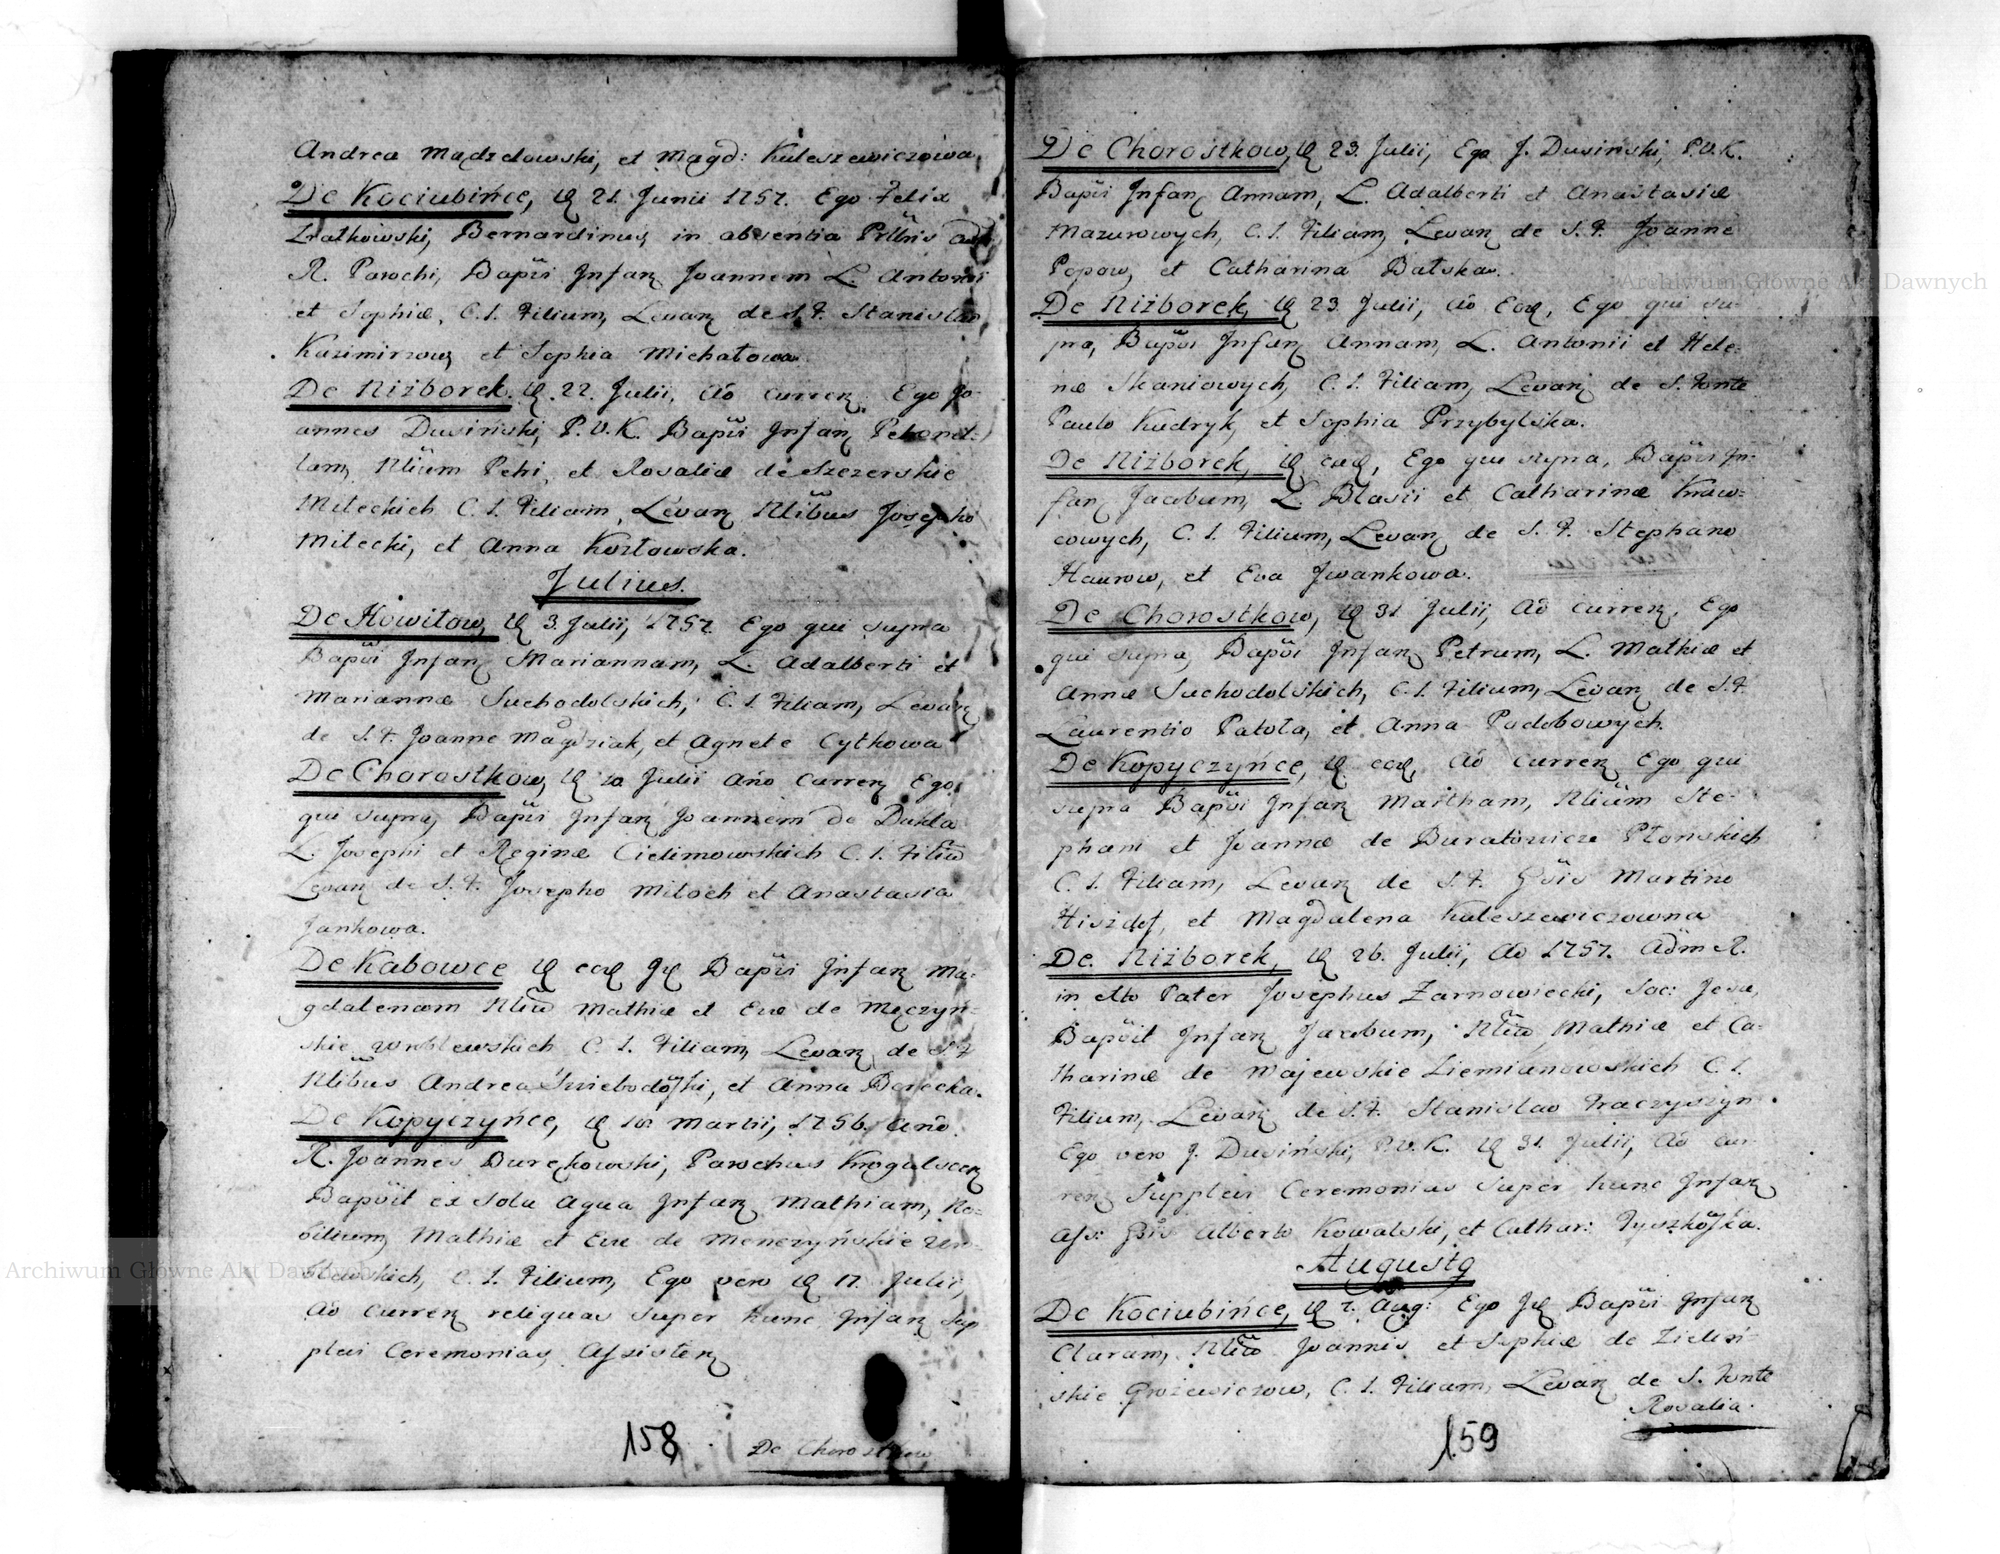 Andrea Mądzelowski, et Magd: Kuleszewiczowa
De Kociubińce, 21. Junii 1757. Ego Felix
Bernardinus, in absentia
R. Parochi, Bapũi Infan Joannem L. Antonii
et Sophiæ, C. I. Filium, Levan de S. F. Stanislao
Kazimirzow, et Sophia Michałowa.
De Niżborek. 22. Julii, Aõ curren. Ego Jo-
annes Dusiński, P. V. K. Bapũi Infan Petronel-
lam, Nlium Petri, et Rosaliæ de Szczerskie
Mileckich C. I. Filiam, Levan Nlibus Josepho
Milecki, et Anna Kozłowska.
Julius.
De Howilow, 3. Julii, 1757. Ego qui supra
Bapũi Infan Mariannam, L. Adalberti et
Mariannæ Suchodolskich, C. I. Filiam, Levan
de S. F. Joanne Magdziak, et Agnete Cytkowa
De Chorostkow, 10 Julii Año curren Ego
qui supra, Bapũi Infan Joannem de Dukla
L. Josephi et Reginæ Cielimowskich C. I. Filiũ
Levan de S. F. Josepho Miloch et Anastasia
Jankowa.
De Kabowce Bapũi Infan Ma-
gdalenam Nliũ Mathiæ et Evæ de Męczyń-
skie Wroblewskich C. I. Filiam, Levan de S. F.
Nlibus Andrea et Anna
De Kopyczyńce, 18. Martii, 1756. Año
R. Joannes Burczkowski, Parochus
Bapũit ex Sola Aqua Infan Mathiam, No-
bilium, Mathiæ et Evæ de Menczyńskie Wro-
blewskich, C. I. Filium, Ego vero 17. Julii,
Aõ curren reliquas super hunc Infan sup
plevi Ceremonias, Assisten
158
De Chorostkow,
De Chorostkow, 23. Julii, Ego J. Dusiński, P. V. K.
Bapũi Infan Annam, L. Adalberti et Anastasiæ
Mazurowych, C. I. Filiam, Levan de S. F. Joanne
Popow, et Catharina Balska.
De Niżborek, 23. Julii, Aõ Eod, Ego qui su-
pra, Bapũi Infan Annam, L. Antonii et Hele-
næ Skaniowych, C. I. Filiam, Levan de S. Fonte
Paulo Kudryk, et Sophia Przybylska.
De Niżborek, eod, Ego qui supra, Bapũi In-
fan Jacobum, L. Blasii et Catharinæ Kraw-
cowych, C. I. Filium, Levan de S. F. Stephano
Haurow, et Eva Jwankowa.
De Chorostkow, 31. Julii, Aõ curren. Ego
qui supra, Bapũi Infan Petrum, L. Mathiæ et
Annæ Suchodolskich, C. I. Filium, Levan de S. F.
Laurentio Patoła, et Anna Podobowych.
De Kopyczyńce, eod, Aõ curren Ego qui
supra Bapũi Infan Martham, Nlium Ste-
phani et Joannæ de Płonskich
C. I. Filiam, Levan de S. F. Martino
et Magdalena Kuleszewiczowna
De. Niżborek, 26. Julii, Aõ 1757. Adm R.
in Pater Josephus Żarnowiecki, Soc: Jesu,
Bapũit Infan Jacobum, Nliũ Mathiæ et Ca-
tharinæ de Majewskie Ziemianowskich C. I.
Filium, Levan de S. F. Stanislao
Ego vero J. Dusiński, P. V. K. 31. Julii, Aõ cur-
ren Supplevi Ceremonias super hunc Infan
Ass: Alberto Kowalski, et Cathar:
Augustq
De Kociubińce, 7. Aug: Ego Bapũi Infan
Claram, Nliũ Joannis et Sophiæ de Zieliń-
skie C. I. Filiam, Levan de S. Fonte
Rosalia.
159
Archiwum Główne Akt Dawnych
Archiwum Główne Akt Dawnych